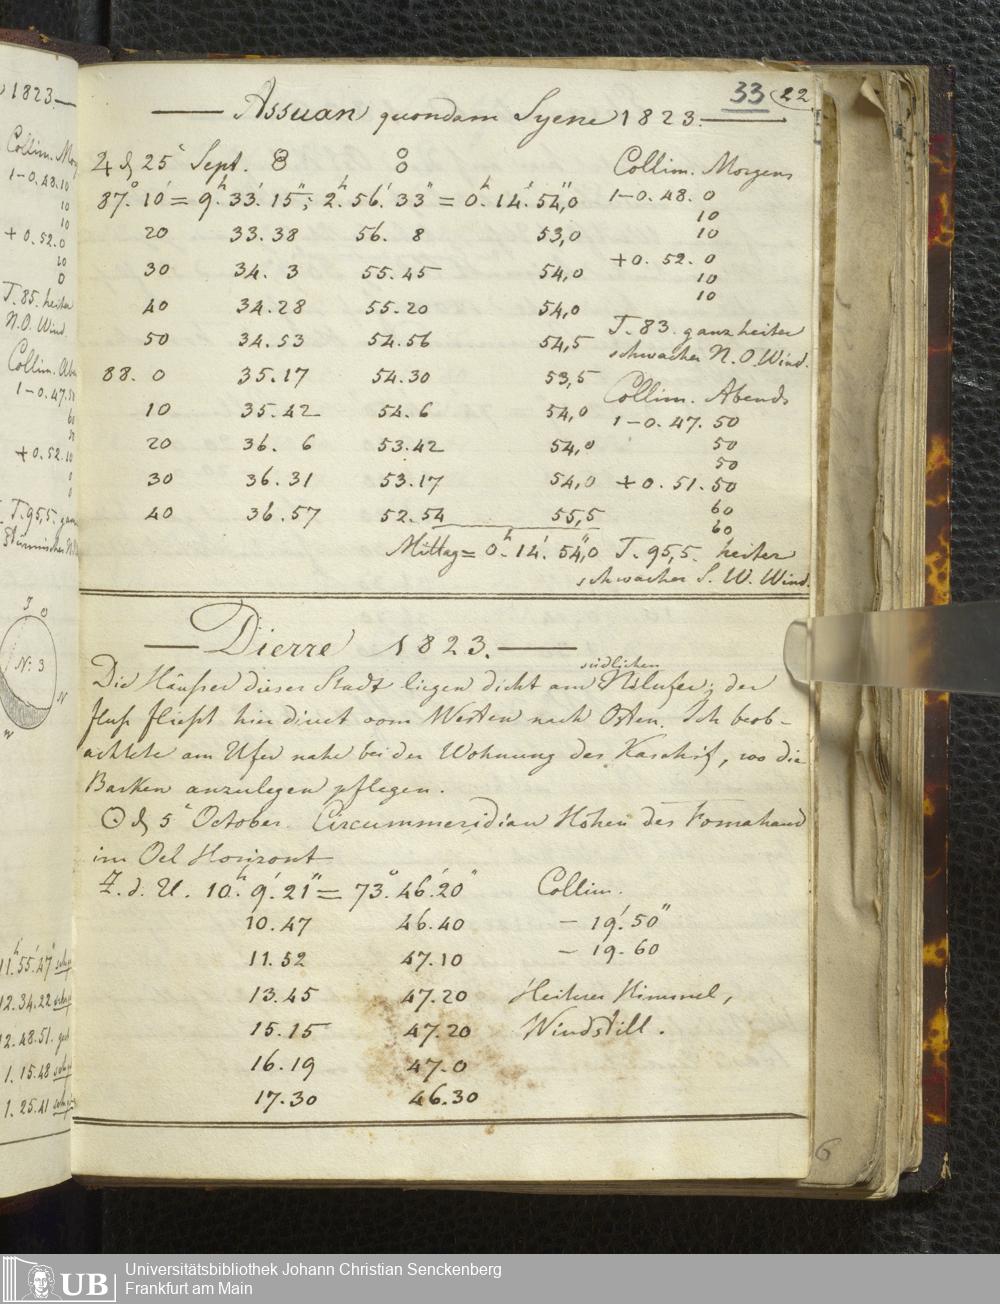 1823.
Collim. Mor
1-0.48.10
10
10
+0.52.0
10
0
T. 85. heiter
N.O. Wind.
Collim. Abe
1-0.47.50
60
50
+0.52.10
0
0
T. 95,5. ganz
N: 3
11h.55'.47"
12.34.22
12.48.51. gut
1.15.48
1.25.41
33 22
— Assuan quondam Syene 1823. —
♃ d 25t Sept. Collim. Morgens
87°.10' = 9h.33'.15"; 2h.56'.33" = 0h.14'.54",0 1-0.48.0
10
20 33.38 56.8 53,0 10
+0.52.0
30 34.3 55.45 54,0 10
10
40 34.28 55.20 54,0
T. 83. ganz heiter
50 34.53 54.56 54,5 schwacher N.O. Wind.
88.0 35.17 54.30 53,5
Collim. Abends
10 35.42 54.6 54,0 1-0.47.50
20 36.6 53.42 54,0 50
50
30 36.31 53.17 54,0 +0.51.50
40 36.57 52.54 55,5 60
60
Mittag = 0h.14'.54",0 T. 95,5. heiter
schwacher S.W. Wind.
— Dierre 1823. —
Die Häußer dieser Stadt liegen dicht am südlichen Nilufer; der
Fluß fließt hier direct vom Westen nach Osten. Ich beob-
achtete am Ufer nahe bei der Wohnung des Kaschif, wo die
Barken anzulegen pflegen.
☉ d 5t October. Circummeridian Höhen des Fomahand
im Oel Horizont
Z. d. U. 10h.9'.21" = 73°.46'.20" Collim.
10.47 46.40 - 19'.50"
11.52 47.10 - 19.60
13.45 47.20 Heiterer Himmel,
15.15 47.20 Windstill.
16.19 47.0
17.30 46.30
6
UB Universitätsbibliothek Johann Christian Senckenberg
Frankfurt am Main